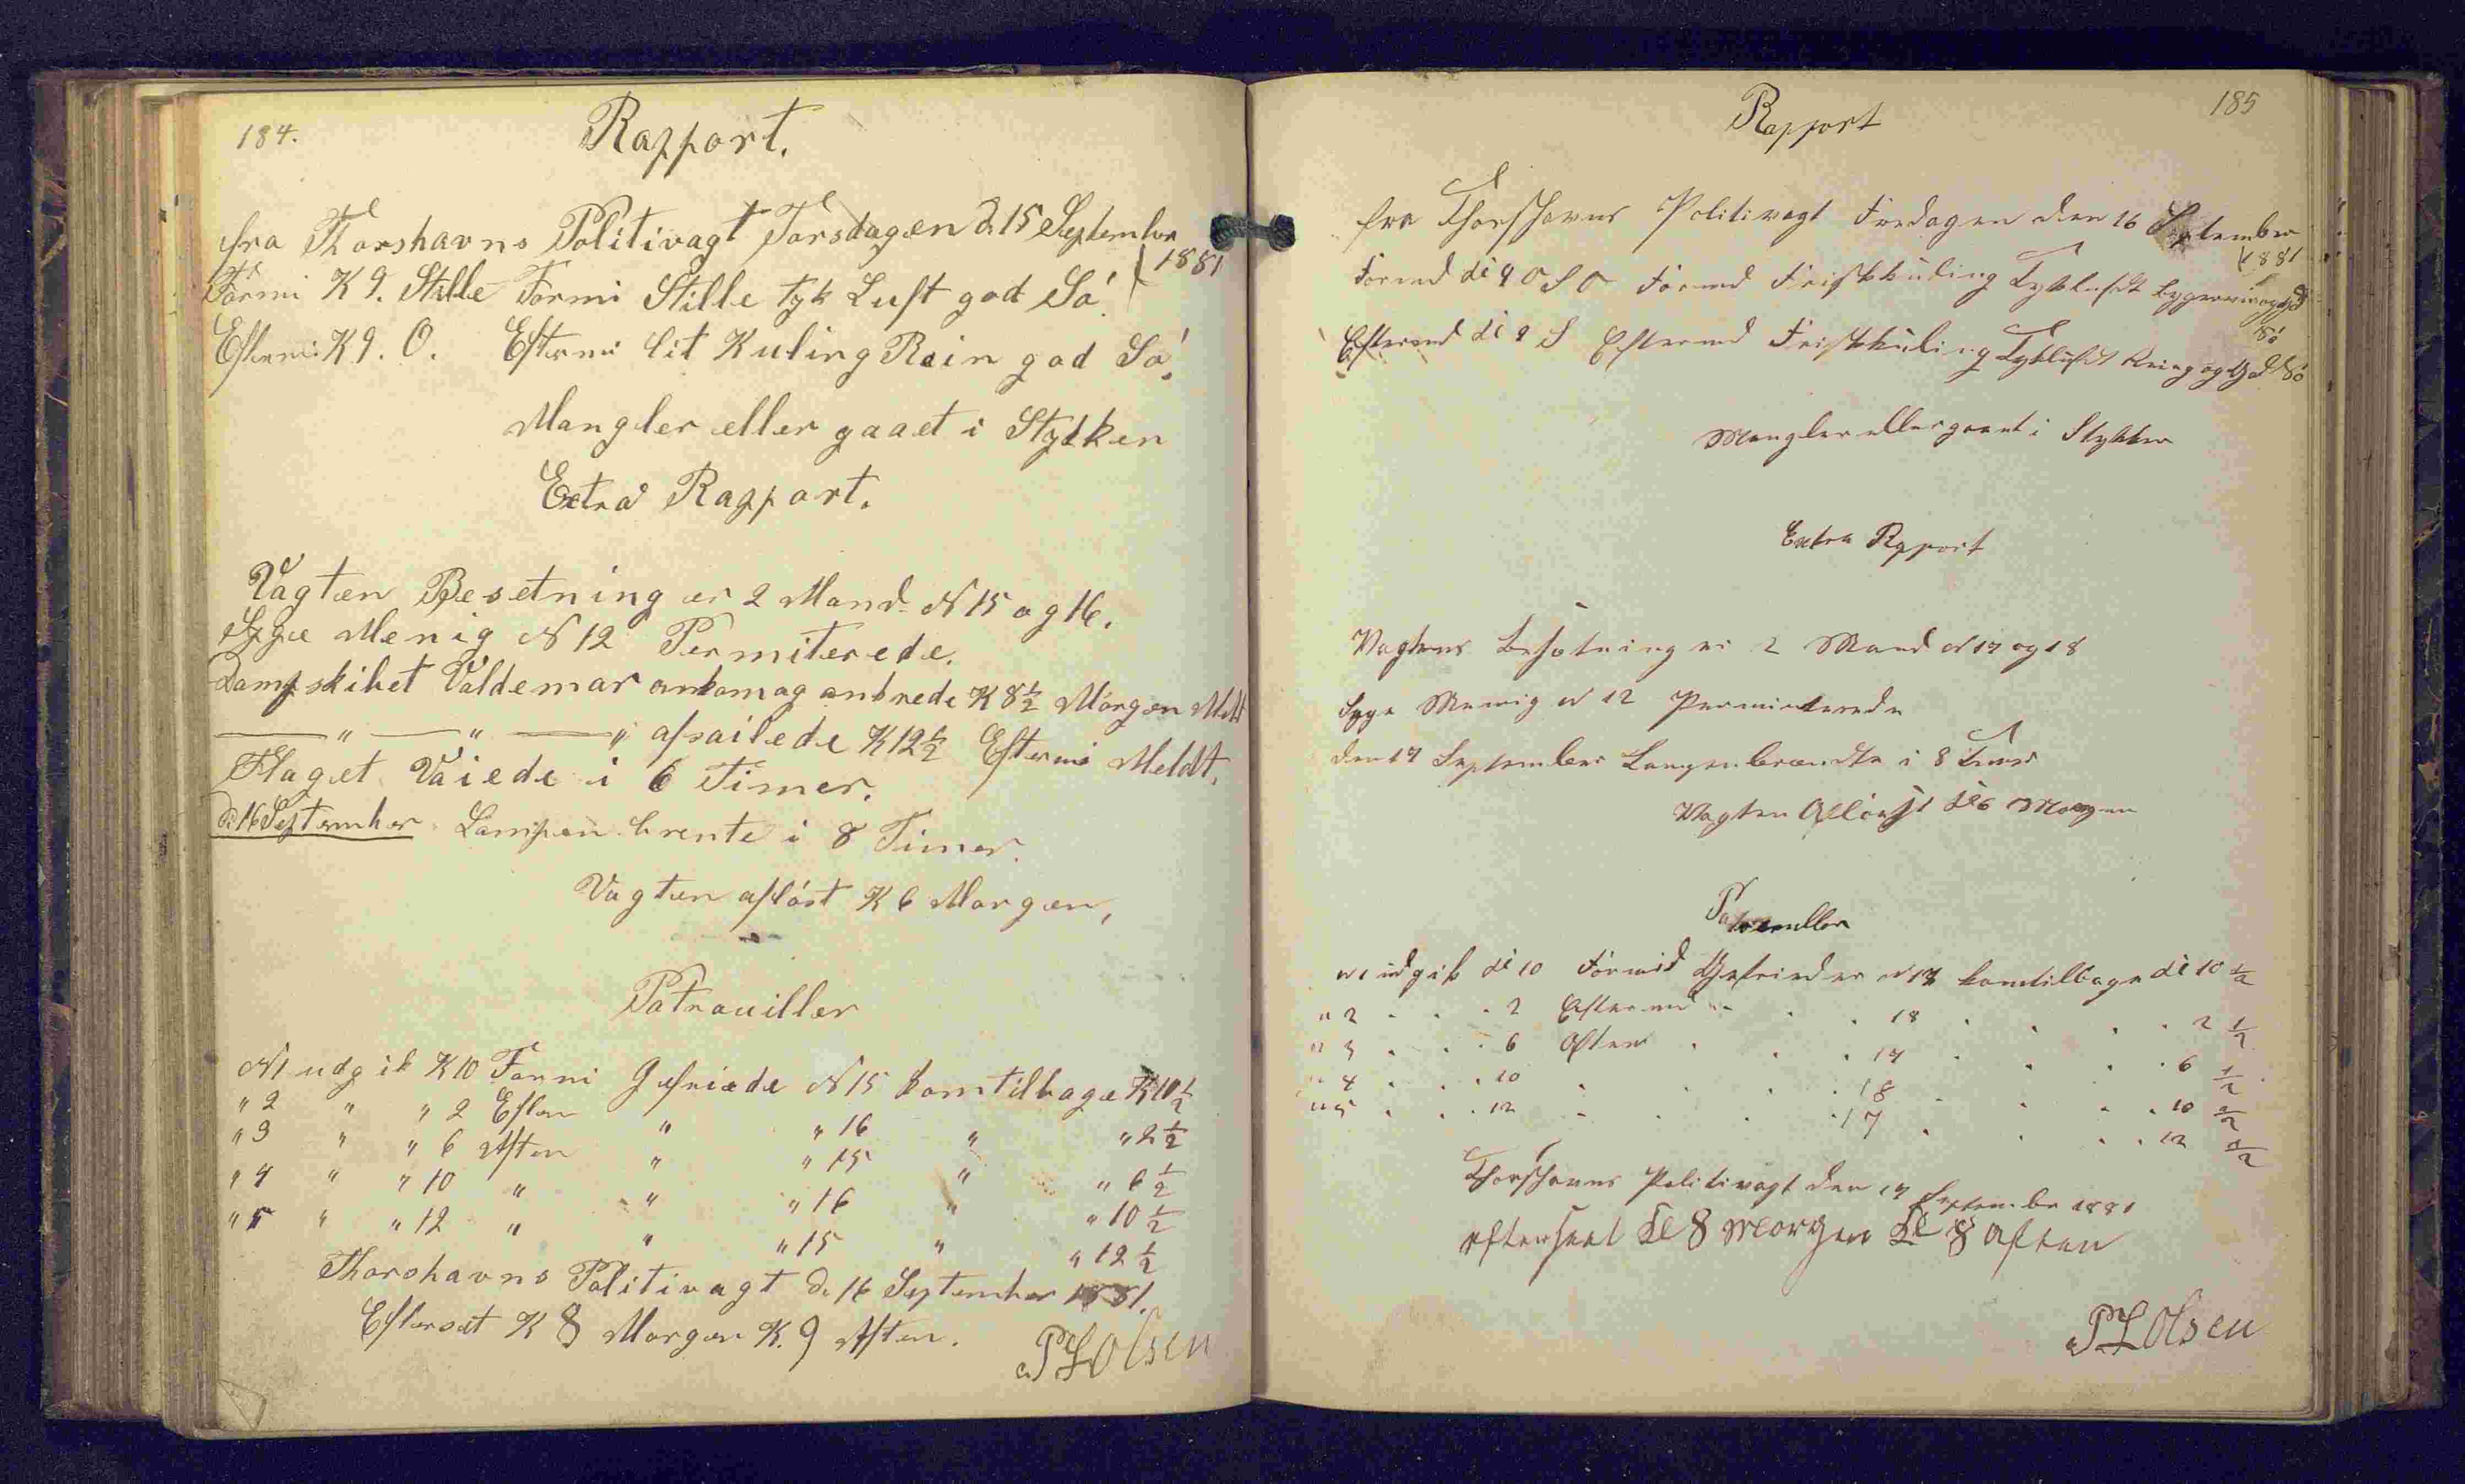 184.
Rapport.
fra Thorshavns Politivagt Torsdagen d. 15 September
1881
Formi K 9. Stille Formi Stille tyk Luft god Só.
Eftermi K 9. O. Eftermi lit Kuling Rein god Só.
Mangler eller gaaet i Stykker
Extra Rapport.
Vagten Besetning er 2 Mand N 15 og 16.
Syge Menig N 12 Permiterede.
Dampskibet Valdemar ankom og ankrede K 8½ Morgen Meldt
— " — " — " afsailede K 12½ Eftermi Meldt.
Flaget Vaiede i 6 Timer.
d. 16 September Lampen brente i 8 Timer.
Vagten aflóst K 6 Morgen,
Patrouiller
N 1 udgik K 10 Formi Gefriede N 15 kom tilbage K 10½
" 2 " " 2 Efter " " 16 " " 2½
" 3 " " 6 Aften " " 15 " " 6½
" 4 " " 10 " " " 16 " " 10½
" 5 " " 12 " " " 15 " " 12½
Thorshavns Politivagt d. 16 September 1881.
Efterset K 8 Morgen K. 9 Aften.
P L Olsen
185
Rapport
fra Thorshavns Politivagt Fredagen den 16 September
1881
Formd Kl 9 O S O Formd Friskkuling Tykluft og god
Só
Eftermd Kl 9 S Eftermd Friskkuling Tykluft Reing og God Só
Mangler eller gaaet i Stykker
Extra Rpport
Vagtens Besætning er 2 Mand N 17 og 18
Syge Menig N 12 Permiterede
den 17 September Lampen brændte i 8 Timer
Vagten Aflöest Kl 6 Morgen
Patrouiller
N 1 udgik Kl 10 Formid Gefrieder N 17 kom tilbage Kl 10 ½
" 2 . . . 2 Eftermd " . . 18 . . . . 2 ½
" 3 . . . 6 Aften . . . 17 . . . . 6 ½
" 4 . . . 10 . . . . 18 . . . . 10 ½
" 5 . . . 12 . . . . 17 . . . . 12 ½
Thorshavns Politivagt den 17 September 1881
efterseet Kl 8 Morgen Kl 8 Aften
P L Olsen